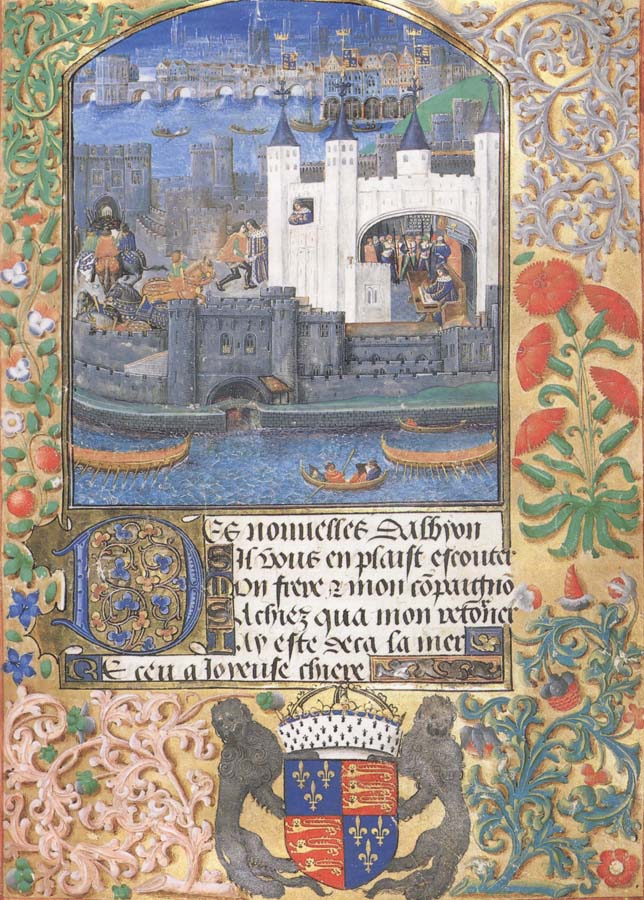 Des nouuelles dalbyon
Sil vous en plaist escouter
Mon frere & mon cõpaignõ
Sachiez qua mon retorner
Iay este deca la mer
Receu a Joyeuse chiere